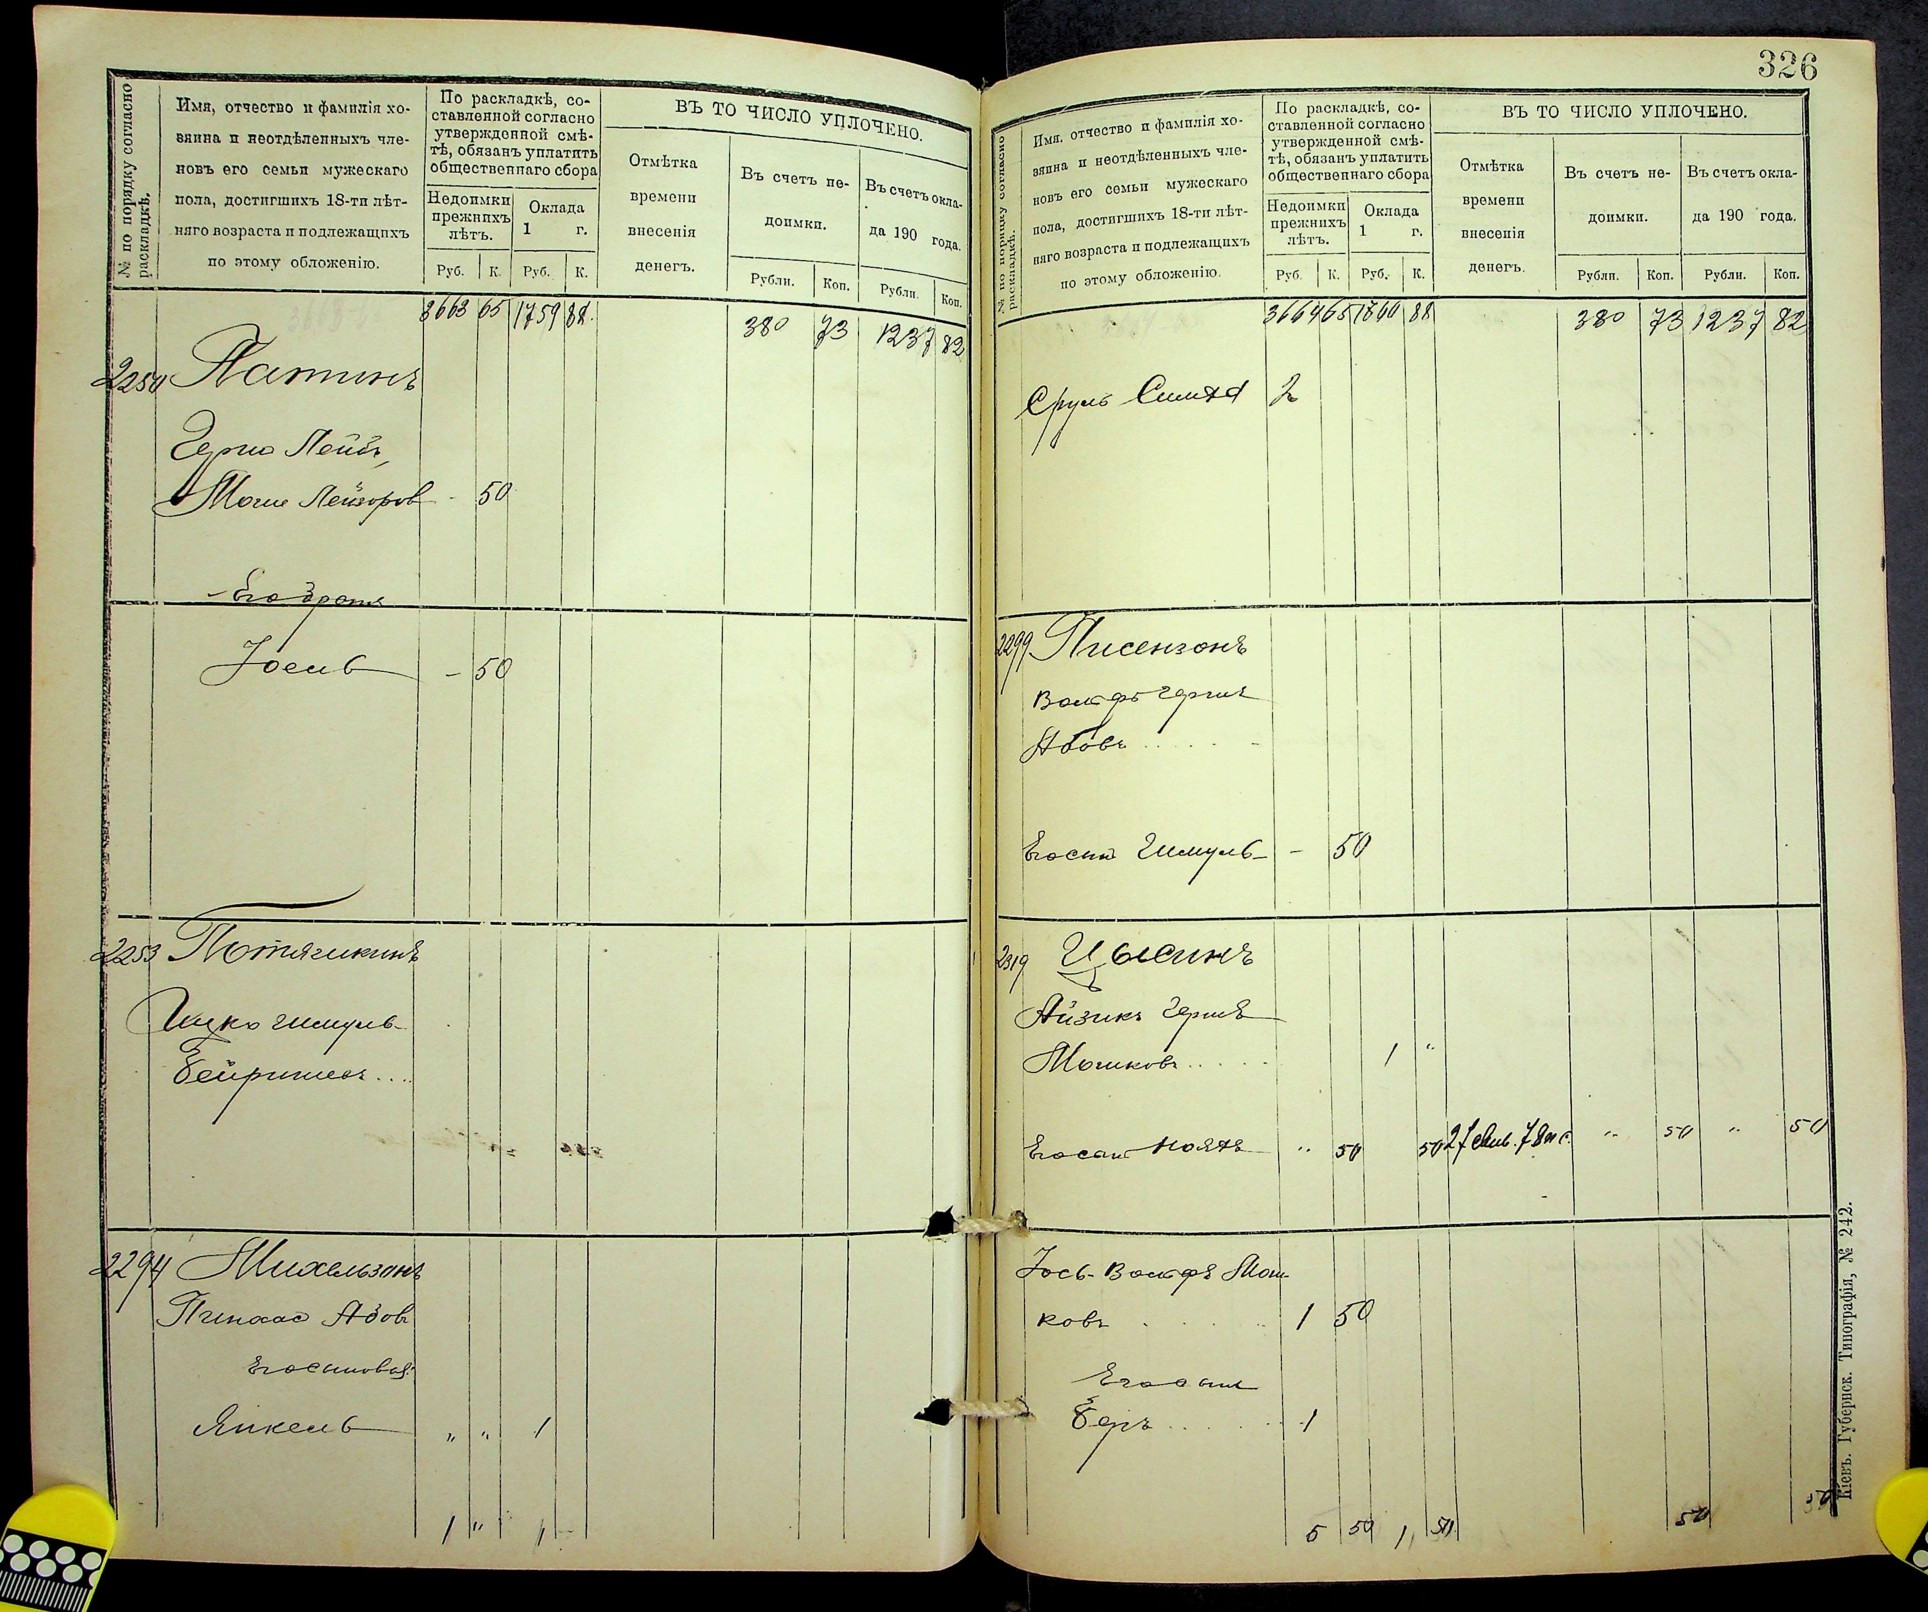 № по порядку согласно раскладкѣ.
Имя, отчество и фамилія хо-
зяина и неотдѣленныхъ чле-
новъ его семьи мужескаго
пола, достигшихъ 18-ти лѣт-
няго возраста и подлежащихъ
по этому обложенію.
По раскладкѣ, со-
ставленной согласно
утвержденной смѣ-
тѣ, обязанъ уплатить
общественнаго сбора
Недоимки
прежнихъ
лѣтъ.
Оклада
1 г.
Руб. К. Руб. К.
ВЪ ТО ЧИСЛО УПЛОЧЕНО.
Отмѣтка
времени
внесенія
денегъ.
Въ счетъ не-
доимки.
Въ счетъ окла-
да 190 года.
Рубли. Коп. Рубли. Коп.
3663 65 1759 88. 380 73 1237 82
2250
Герш Лейбъ
Мошк Лейзоров - 50
Его братъ
Іосель - 50
2253
Ицко Шмуль
Бейришев. . . .
2294 Михельзонъ
Пинхас Абов
Его сыновья:
Янкель " " 1
1 " 1
326
№ по порядку согласно раскладкѣ.
Имя, отчество и фамилія хо-
зяина и неотдѣленныхъ чле-
новъ его семьи мужескаго
пола, достигшихъ 18-ти лѣт-
няго возраста и подлежащихъ
по этому обложенію.
По раскладкѣ, со-
ставленной согласно
утвержденной смѣ-
тѣ, обязанъ уплатить
общественнаго сбора
Недоимки
прежнихъ
лѣтъ.
Оклада
1 г.
Руб. К. Руб. К.
ВЪ ТО ЧИСЛО УПЛОЧЕНО.
Отмѣтка
времени
внесенія
денегъ.
Въ счетъ не-
доимки.
Въ счетъ окла-
да 190 года.
Рубли. Коп. Рубли. Коп.
3664 65 1760 88 380 73 1237 82
Сруль Симха 2
2299 Писензонъ
Вольфъ Гершъ
Абовъ . . . . . -
Его сынъ Шмуль - 50
2319 Цысинъ
Айзикъ Гершъ
Мошковъ . . . . . 1 "
Его сынъ " 50 50 27 " 50 " 50
Іось-Вольфъ Мош-
ковъ . . . . . 1 50
Его сынъ
Беръ . . . . . 1
5 50 1 50 50 50
Кіевъ. Губернск. Типографія, № 242.